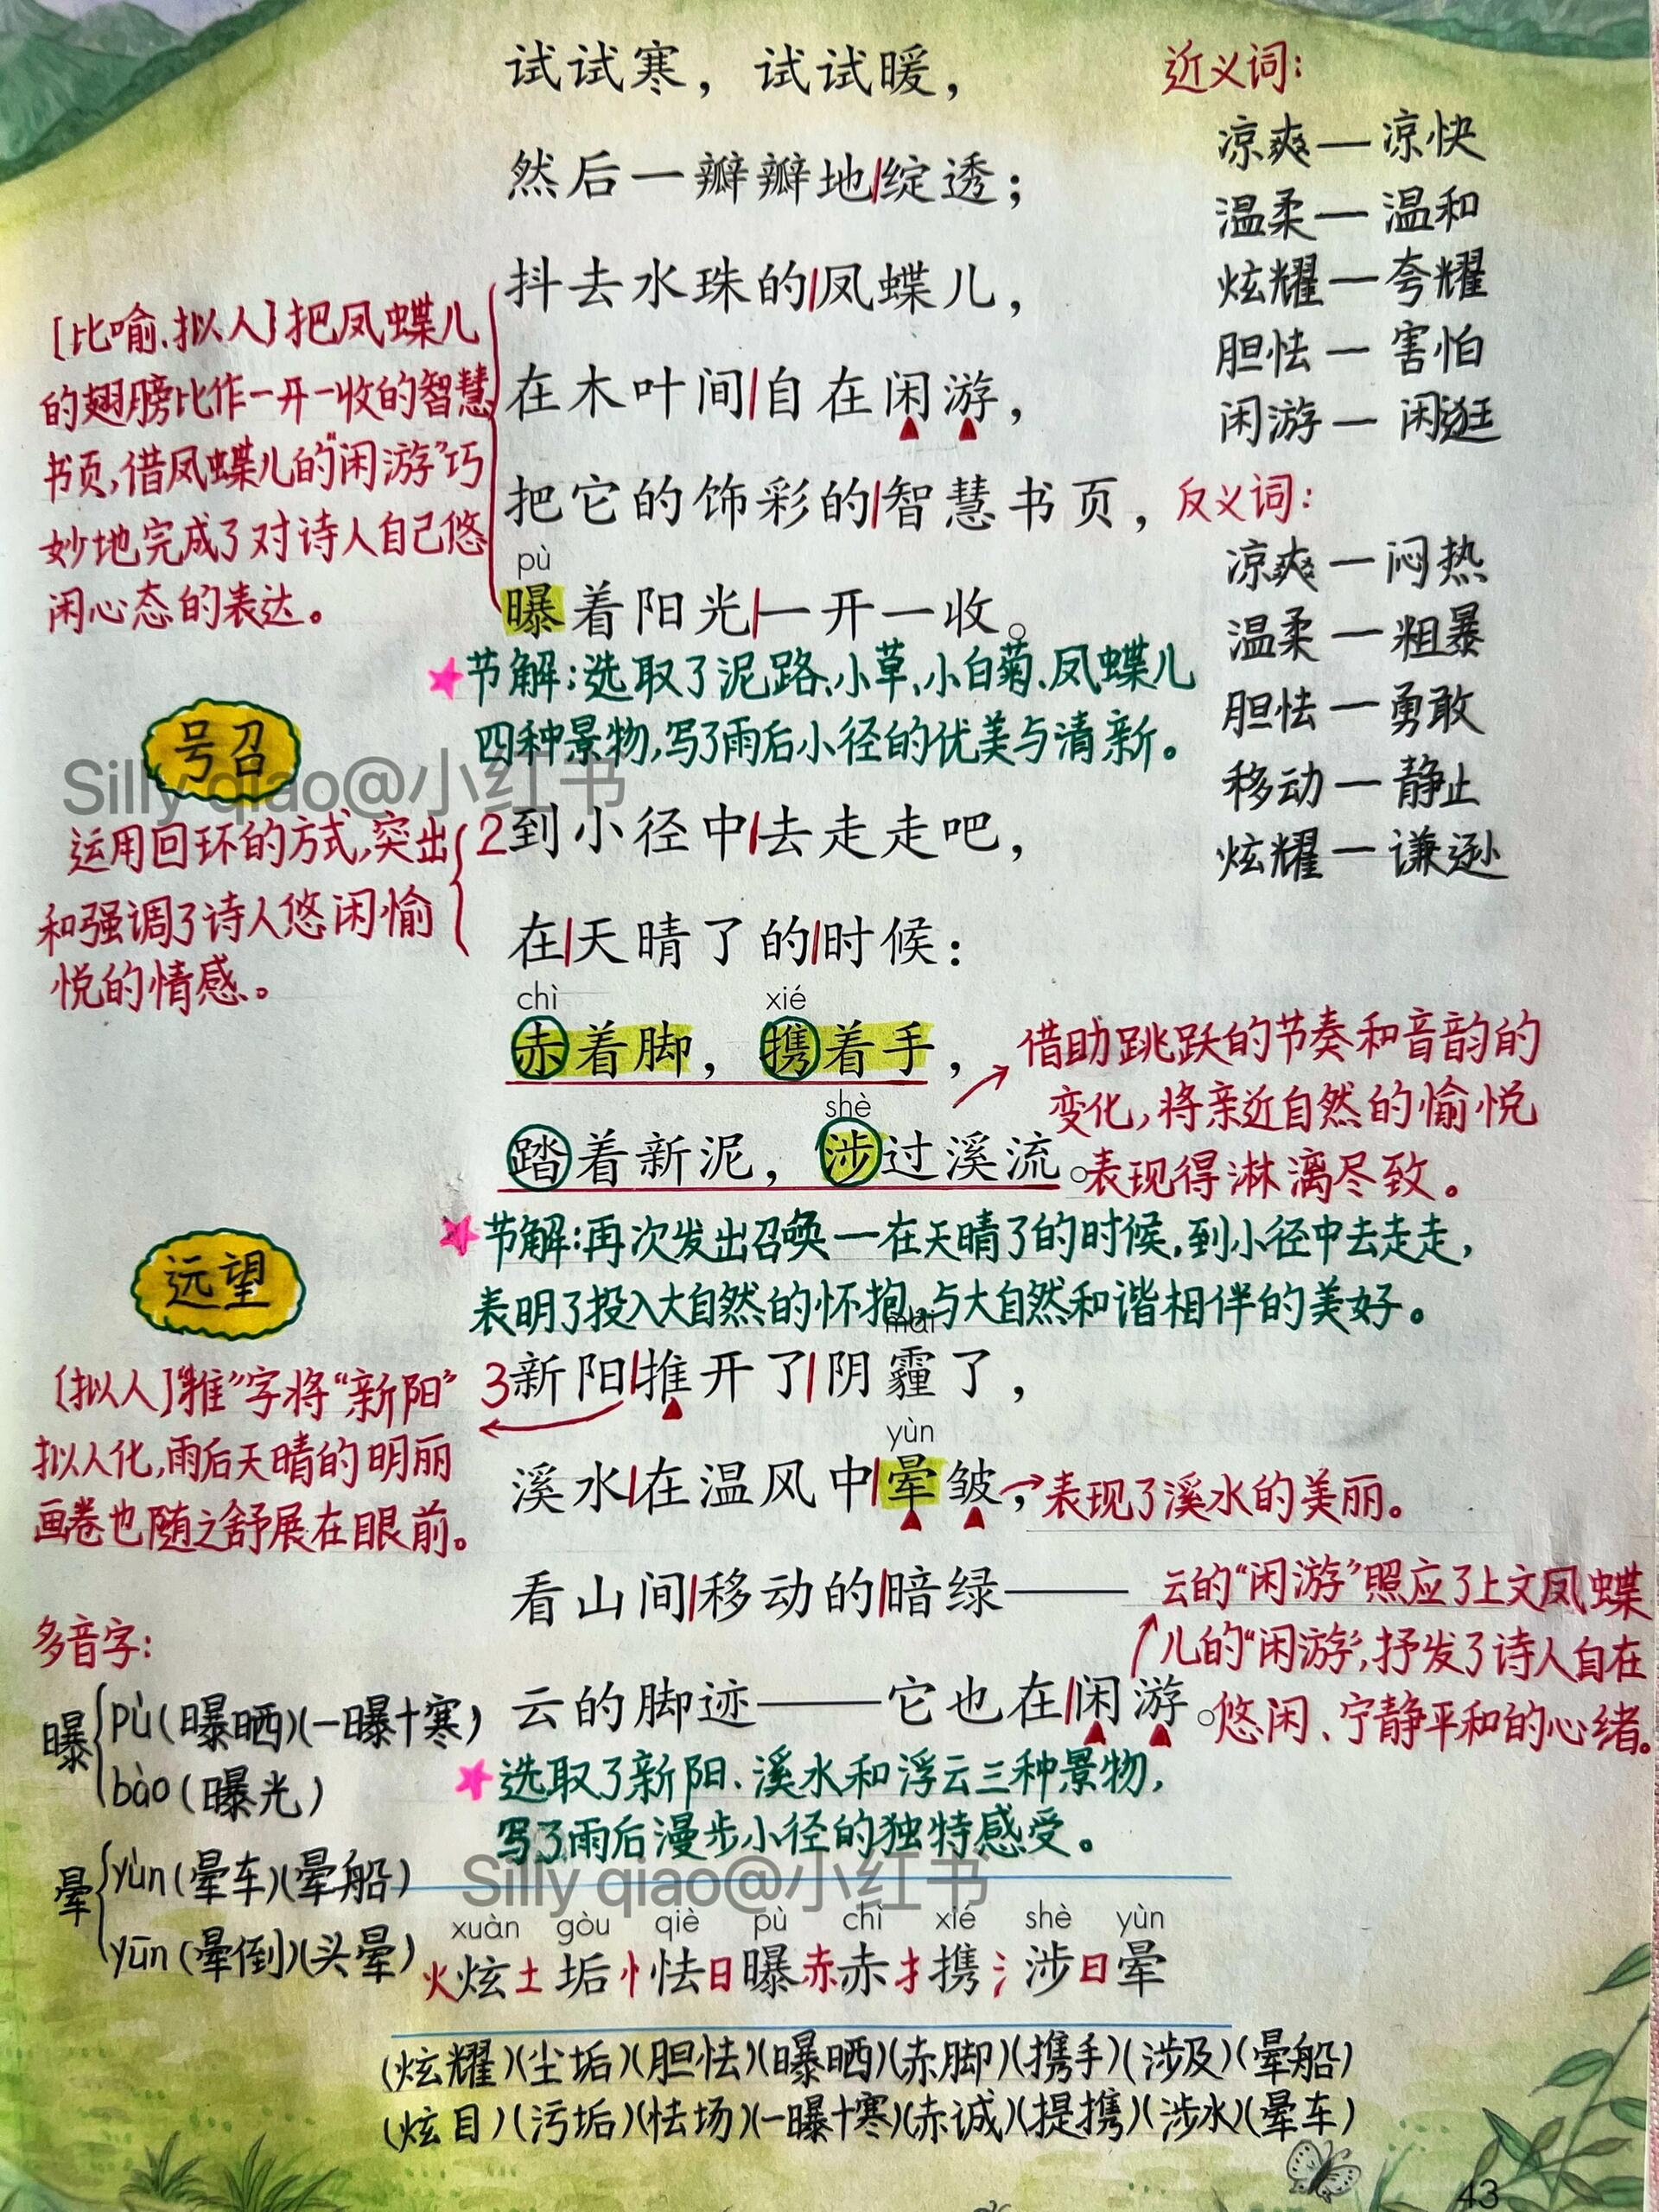 试试寒，试试暖，
然后一瓣瓣地|绽透；
抖去水珠的|凤蝶儿，
在木叶间|自在闲游，
把它的饰彩的|智慧书页，
pù
曝着阳光|一开一收。
[比喻、拟人]把凤蝶儿
的翅膀比作一开一收的智慧
书页，借凤蝶儿的“闲游”巧
妙地完成了对诗人自己悠
闲心态的表达。
近义词：
凉爽—凉快
温柔—温和
炫耀—夸耀
胆怯—害怕
闲游—闲逛
反义词：
凉爽—闷热
温柔—粗暴
胆怯—勇敢
移动—静止
炫耀—谦逊
★节解：选取了泥路、小草、小白菊、凤蝶儿
四种景物，写了雨后小径的优美与清新。
号召
Silly qiao@小红书
2到小径中|去走走吧，
在|天晴了的|时候：
运用回环的方式，突出
和强调了诗人悠闲愉
悦的情感。
chì xié
赤着脚，携着手，
shè
踏着新泥，涉过溪流。
借助跳跃的节奏和音韵的
变化，将亲近自然的愉悦
表现得淋漓尽致。
★节解：再次发出召唤—在天晴了的时候，到小径中去走走，
表明了投入大自然的怀抱、与大自然和谐相伴的美好。
远望
mái
3新阳|推开了|阴霾了，
[拟人]“推”字将“新阳”
拟人化，雨后天晴的明丽
画卷也随之舒展在眼前。
yùn
溪水|在温风中|晕皱，
表现了溪水的美丽。
看山间|移动的|暗绿——
云的脚迹——它也在|闲游。
云的“闲游”照应了上文凤蝶
儿的“闲游”，抒发了诗人自在
悠闲、宁静平和的心绪。
★选取了新阳、溪水和浮云三种景物，
写了雨后漫步小径的独特感受。
多音字：
曝{pù(曝晒)(一曝十寒)
bào(曝光)
晕{yùn(晕车)(晕船)
yūn(晕倒)(头晕)
Silly qiao@小红书
xuàn gòu qiè pù chì xié shè yùn
火炫土垢忄怯日曝赤赤扌携氵涉日晕
(炫耀)(尘垢)(胆怯)(曝晒)(赤脚)(携手)(涉及)(晕船)
(炫目)(污垢)(怯场)(一曝十寒)(赤诚)(提携)(涉水)(晕车)
43